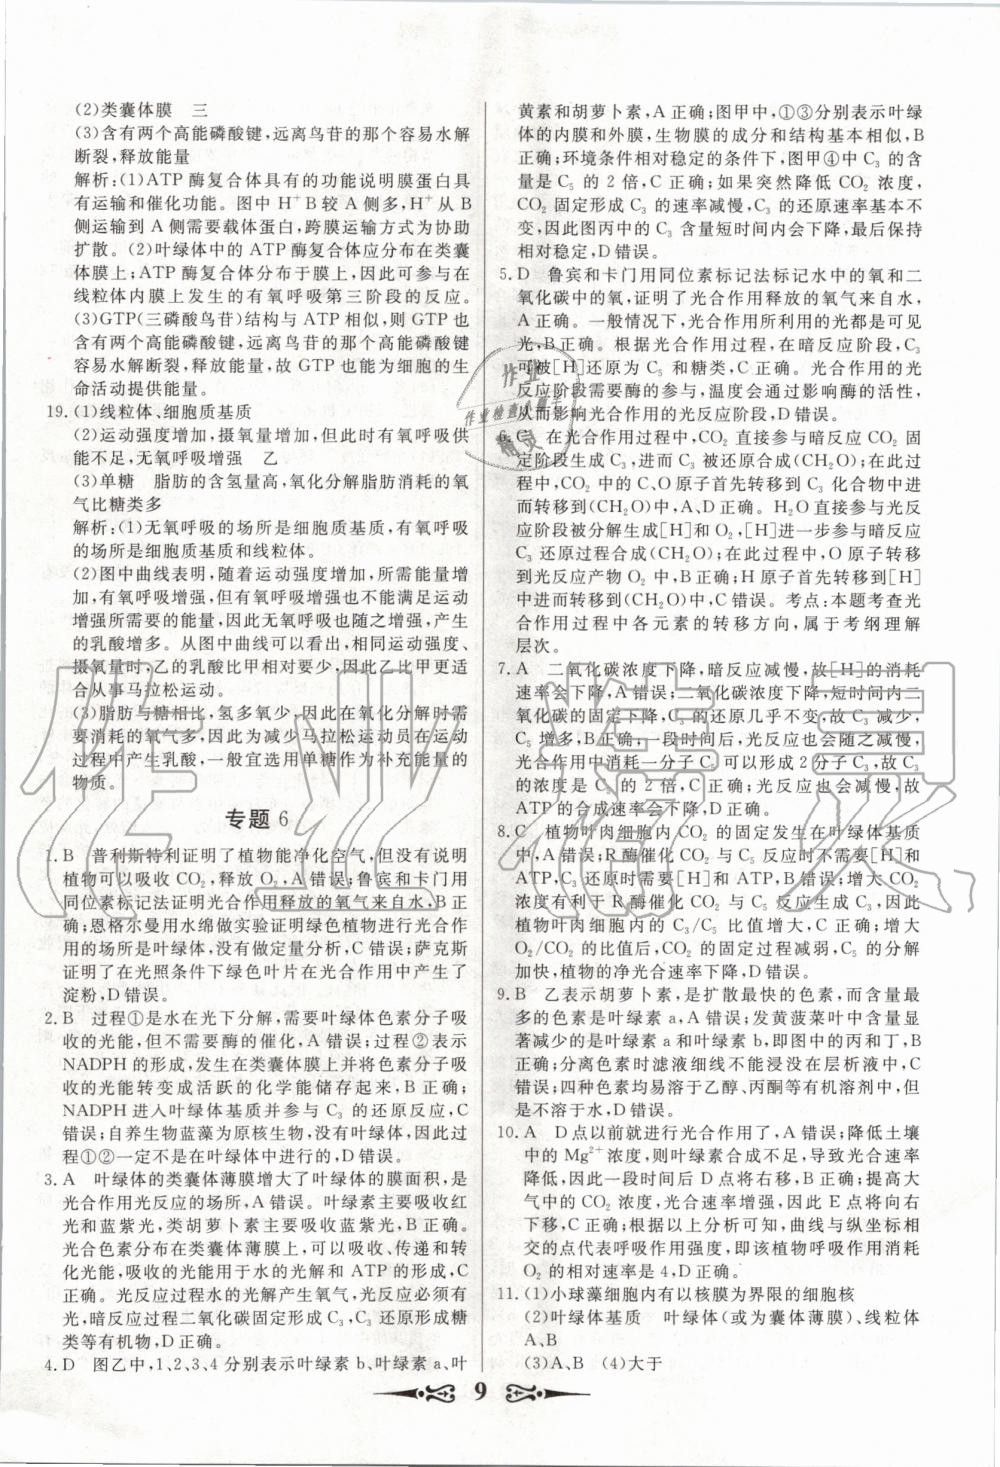 (2)类囊体膜　三
(3)含有两个高能磷酸键,远离鸟苷的那个容易水解
断裂,释放能量
解析:(1)ATP 酶复合体具有的功能说明膜蛋白具
有运输和催化功能。图中 H⁺ B较 A 侧多,H⁺从 B
侧运输到 A 侧需要载体蛋白,跨膜运输方式为协助
扩散。(2)叶绿体中的 ATP 酶复合体应分布在类囊
体膜上;ATP 酶复合体分布于膜上,因此可参与在
线粒体内膜上发生的有氧呼吸第三阶段的反应。
(3)GTP(三磷酸鸟苷)结构与 ATP 相似,则 GTP 也
含有两个高能磷酸键,远离鸟苷的那个高能磷酸键
容易水解断裂,释放能量,故 GTP 能为细胞的生
命活动提供能量。
19.(1)线粒体、细胞质基质
(2)运动强度增加,摄氧量增加,但此时有氧呼吸供
能不足,无氧呼吸增强　乙
(3)单糖　脂肪的含氢量高,氧化分解脂肪消耗的氧
气比糖类多
解析:(1)无氧呼吸的场所是细胞质基质,有氧呼吸
的场所是细胞质基质和线粒体。
(2)图中曲线表明,随着运动强度增加,所需能量增
加,有氧呼吸增强,但有氧呼吸增强也不能满足运动
增强所需要的能量,因此无氧呼吸也会增强,产生
的乳酸增多。从图中曲线可以看出,相同运动强度、
摄氧量时,乙的乳酸比甲样少,因此乙比甲更适
合从事马拉松运动。
(3)脂肪与糖相比,氢多氧少,因此在氧化分解时需
要消耗的氧气多,因此为减少马拉松运动员在运动
过程中产生乳酸,一般宜选用单糖作为补充能量的
物质。
专题 6
1.B　普利斯特利证明了植物能净化空气,但没有说明
植物可以吸收 CO₂,释放 O₂,A 错误;鲁宾和卡门用
同位素标记法证明光合作用释放的氧气来自水,B正
确;恩格尔曼用水绵做实验证明绿色植物进行光合作
用的场所是叶绿体,没有做定量分析,C 错误;萨克斯
证明了在光照条件下绿色叶片在光合作用中产生了
淀粉,D错误。
2.B　过程①是水在光下分解,需要叶绿体色素分子吸
收的光能,但不需要酶的催化,A 错误;过程②表示
NADPH 的形成,发生在类囊体膜上并将色素分子吸
收的光能转变成活跃的化学能储存起来,B 正确;
NADPH 进入叶绿体基质并参与 C₃ 的还原反应,C
错误;自养生物蓝藻为原核生物,没有叶绿体,因此过
程①②一定不是在叶绿体中进行的,D 错误。
3.A　叶绿体的类囊体薄膜增大了叶绿体的膜面积,是
光合作用光反应的场所,A 错误。叶绿素主要吸收红
光和蓝紫光,类胡萝卜素主要吸收蓝紫光,B 正确。
光合色素分布在类囊体薄膜上,可以吸收、传递和转
化光能,吸收的光能用于水的光解和 ATP 的形成,C
正确。光反应过程水的光解产生氧气,光反应必须有
光,暗反应过程二氧化碳固定形成 C₃,C₃ 还原形成糖
类等有机物,D正确。
4.D　图乙中,1、2、3、4 分别表示叶绿素 b、叶绿素 a、叶
黄素和胡萝卜素,A 正确;图甲中,①③分别表示叶绿
体的内膜和外膜,生物膜的成分和结构基本相似,B
正确;环境条件相对稳定的条件下,图甲④中 C₃ 的含
量是 C₅ 的 2 倍,C 正确;如果突然降低 CO₂ 浓度,
CO₂ 固定形成 C₃ 的速率减慢,C₃ 的还原速率基本不
变,因此图丙中的 C₃ 含量短时间内会下降,最后保持
相对稳定,D 错误。
5.D　鲁宾和卡门用同位素标记法标记水中的氧和二
氧化碳中的氧,证明了光合作用释放的氧气来自水,
A 正确。一般情况下,光合作用所利用的光都是可见
光,B正确。根据光合作用过程,在暗反应阶段,C₃
可被[H]还原为 C₅ 和糖类,C 正确。光合作用的光
反应阶段需要酶的参与,温度会通过影响酶的活性,
从而影响光合作用的光反应阶段,D 错误。
6.C　在光合作用过程中,CO₂ 直接参与暗反应 CO₂ 固
定阶段生成 C₃,进而 C₃ 被还原合成(CH₂O);在此过
程中,CO₂ 中的 C、O 原子首先转移到 C₃ 化合物中进
而转移到(CH₂O)中,A、D正确。H₂O 直接参与光反
应阶段被分解生成[H]和 O₂,[H]进一步参与暗反应
C₃ 还原过程合成(CH₂O);在此过程中,O 原子转移
到光反应产物 O₂ 中,B正确;H 原子首先转移到[H]
中进而转移到(CH₂O)中,C 错误。考点:本题考查光
合作用过程中各元素的转移方向,属于考纲理解
层次。
7.A　二氧化碳浓度下降,暗反应减慢,故[H]的消耗
速率会下降,A 错误;二氧化碳浓度下降,短时间内二
氧化碳的固定下降,C₃ 的还原几乎不变,故 C₃ 减少,
C₅ 增多,B 正确;一段时间后,光反应也会随之减慢,
光合作用中消耗一分子 C₅ 可以形成 2 分子 C₃,故 C₃
的浓度是 C₅ 的 2 倍,C 正确;光反应会减慢,故
ATP 的合成速率会下降,D正确。
8.C　植物叶肉细胞内 CO₂ 的固定发生在叶绿体基质
中,A 错误;R 酶催化 CO₂ 与 C₅ 反应时不需要[H]和
ATP,C₃ 还原时需要[H]和 ATP,B 错误;增大 CO₂
浓度有利于 R 酶催化 CO₂ 与 C₅ 反应生成 C₃,因此
植物叶肉细胞内的 C₃/C₅ 比值增大,C 正确;增大
O₂/CO₂ 的比值后,CO₂ 的固定过程减弱,C₅ 的分解
加快,植物的净光合速率下降,D 错误。
9.B　乙表示胡萝卜素,是扩散最快的色素,而含量最
多的是叶绿素 a,A 错误;发黄菠菜叶中含量显
著减少的是叶绿素 a和叶绿素 b,即图中的丙和丁,B
正确;分离色素时滤液细线不能浸没在层析液中,C
错误;四种色素均易溶于乙醇、丙酮等有机溶剂中,但
是不溶于水,D 错误。
10.A　D点以前就进行光合作用了,A 错误;降低土壤
中的 Mg²⁺浓度,则叶绿素合成不足,导致光合速率
降低,因此一段时间后 D 点将右移,B 正确;提高大
气中的 CO₂ 浓度,光合速率增强,因此 E 点将向右
下移,C 正确;根据以上分析可知,曲线与纵坐标相
交的点代表呼吸作用强度,即该植物呼吸作用消耗
O₂ 的相对速率是 4,D 正确。
11.(1)小球藻细胞内有以核膜为界限的细胞核
(2)叶绿体基质　叶绿体(或为囊体薄膜)、线粒体
A、B
(3)A、B　(4)大于
9